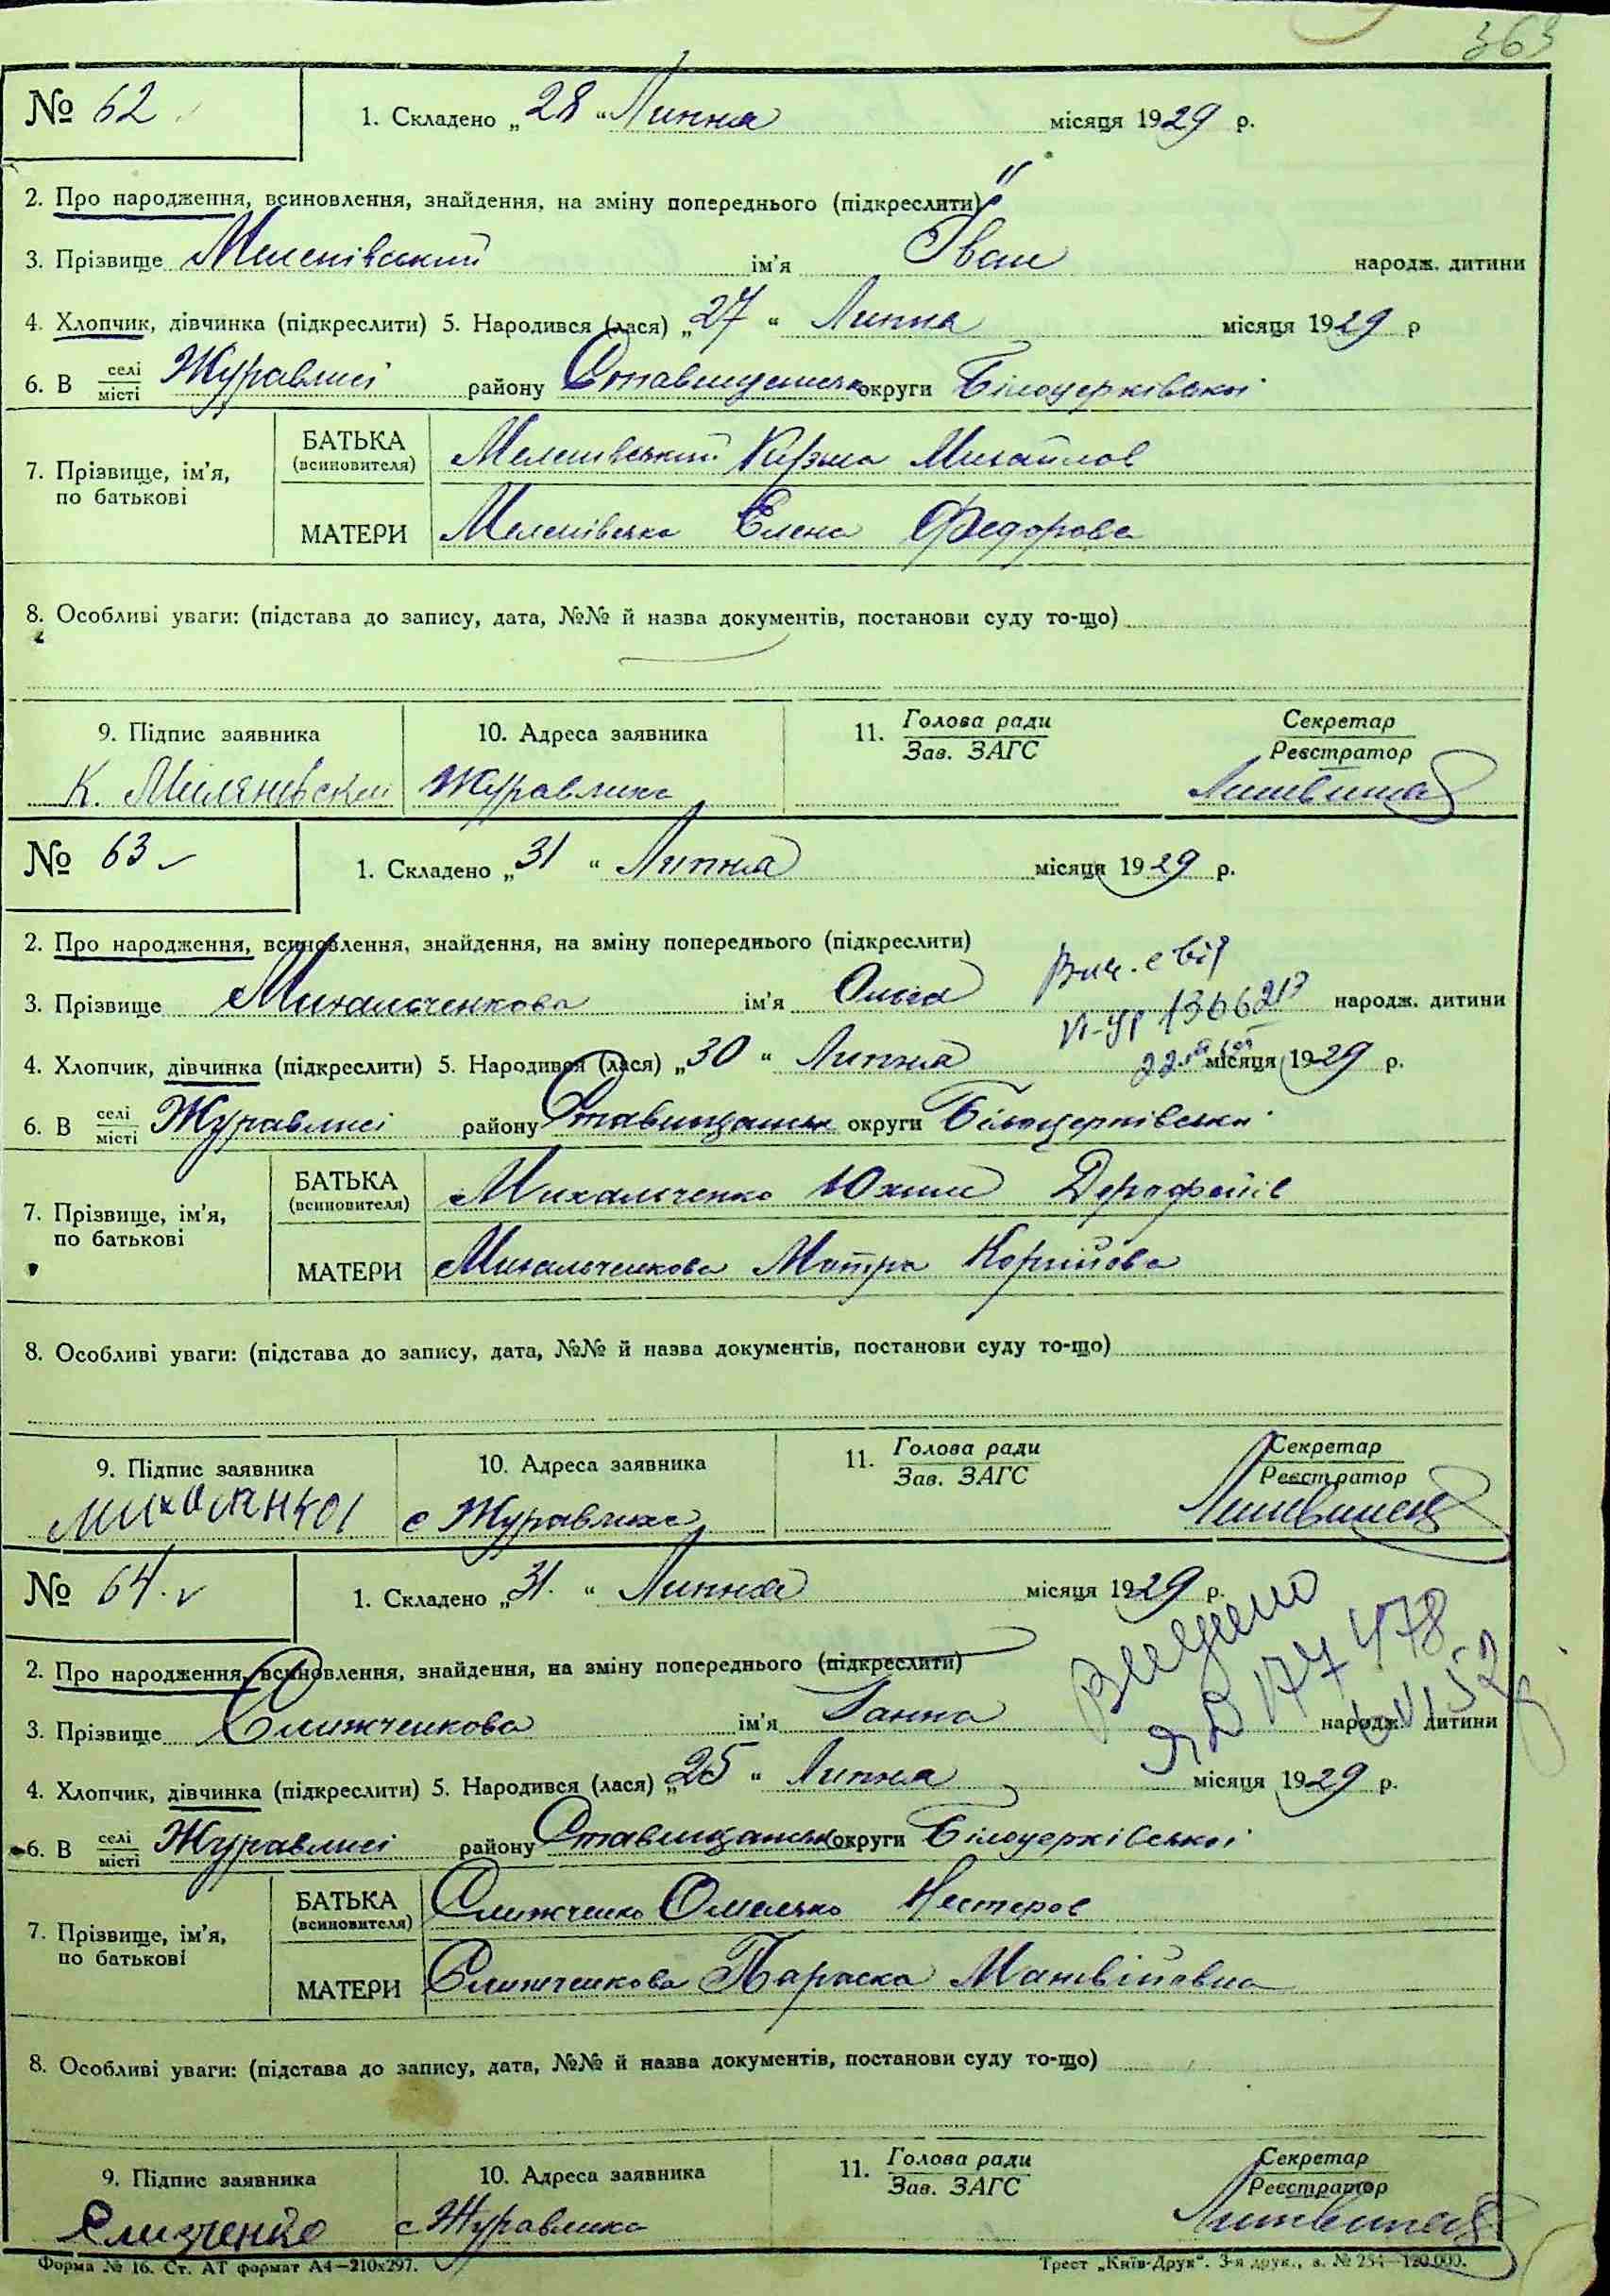 363
№ 62 1. Складено „28“ Липня місяця 1929 р.
2. Про народження, всиновлення, знайдення, на зміну попереднього (підкреслити)
3. Прізвище Меленівський ім'я Іван народж. дитини
4. Хлопчик, дівчинка (підкреслити) 5. Народився (лася) „27“ Липня місяця 1929 р
6. В селі/місті Журавлисі району Ставищанськ округи Білоцерківської
7. Прізвище, ім'я, по батькові
БАТЬКА (всиновителя) Меленівський Кузьма Михайлов
МАТЕРИ Меленівська Елена Федорова
8. Особливі уваги: (підстава до запису, дата, №№ й назва документів, постанови суду то-що)
9. Підпис заявника 10. Адреса заявника 11. Голова ради/Зав. ЗАГС Секретар/Реєстратор
К. Міляневский Журавлиха
№ 63 1. Складено „31“ Липня місяця 1929 р.
2. Про народження, всиновлення, знайдення, на зміну попереднього (підкреслити)
3. Прізвище Михальченкова ім'я Ольга народж. дитини
4. Хлопчик, дівчинка (підкреслити) 5. Народився (лася) „30“ Липня місяця 1929 р.
6. В селі/місті Журавлисі району Ставищанськ округи Білоцерківськ
7. Прізвище, ім'я, по батькові
БАТЬКА (всиновителя) Михальченко Юхим Дорофеїв
МАТЕРИ Михальченкова Мотря Корнійова
8. Особливі уваги: (підстава до запису, дата, №№ й назва документів, постанови суду то-що)
9. Підпис заявника 10. Адреса заявника 11. Голова ради/Зав. ЗАГС Секретар/Реєстратор
с Журавлиха
№ 64. 1. Складено „31.“ Липня місяця 1929 р.
2. Про народження, всиновлення, знайдення, на зміну попереднього (підкреслити)
3. Прізвище Слижченкова ім'я Ганна народж. дитини
4. Хлопчик, дівчинка (підкреслити) 5. Народився (лася) „25“ Липня місяця 1929 р.
6. В селі/місті Журавлисі району Ставищанськ округи Білоцерківської
7. Прізвище, ім'я, по батькові
БАТЬКА (всиновителя) Слижченко Омелько Нестеров
МАТЕРИ Слижченкова Параска Матвійовна
8. Особливі уваги: (підстава до запису, дата, №№ й назва документів, постанови суду то-що)
9. Підпис заявника 10. Адреса заявника 11. Голова ради/Зав. ЗАГС Секретар/Реєстратор
с Журавлиха
Форма № 16. Ст. АТ формат А4—210х297. Трест „Київ-Друк“. 3-я друк., з. № 254—120.000.